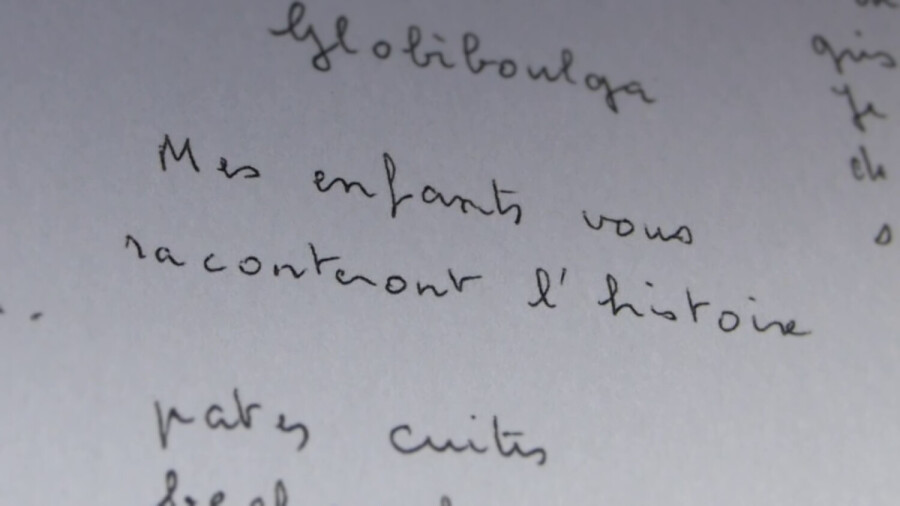 Globiboulga
Mes enfants vous
raconteront l'histoire
pates cuites